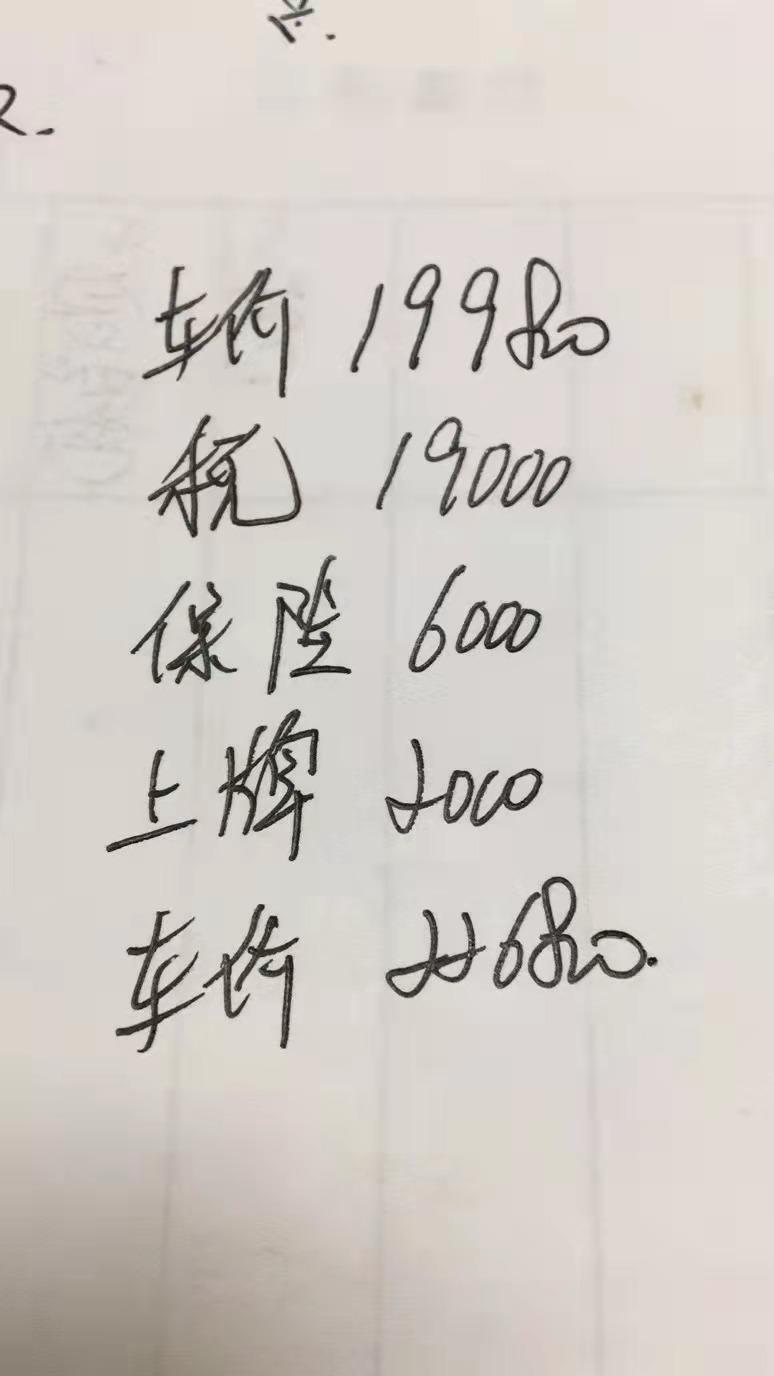 2.
车价 199800
税 19000
保险 6000
上牌 2000
车价 226800.